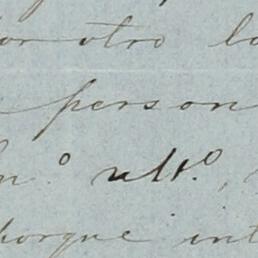 por otro la
person
n.º ult.º,
porque int